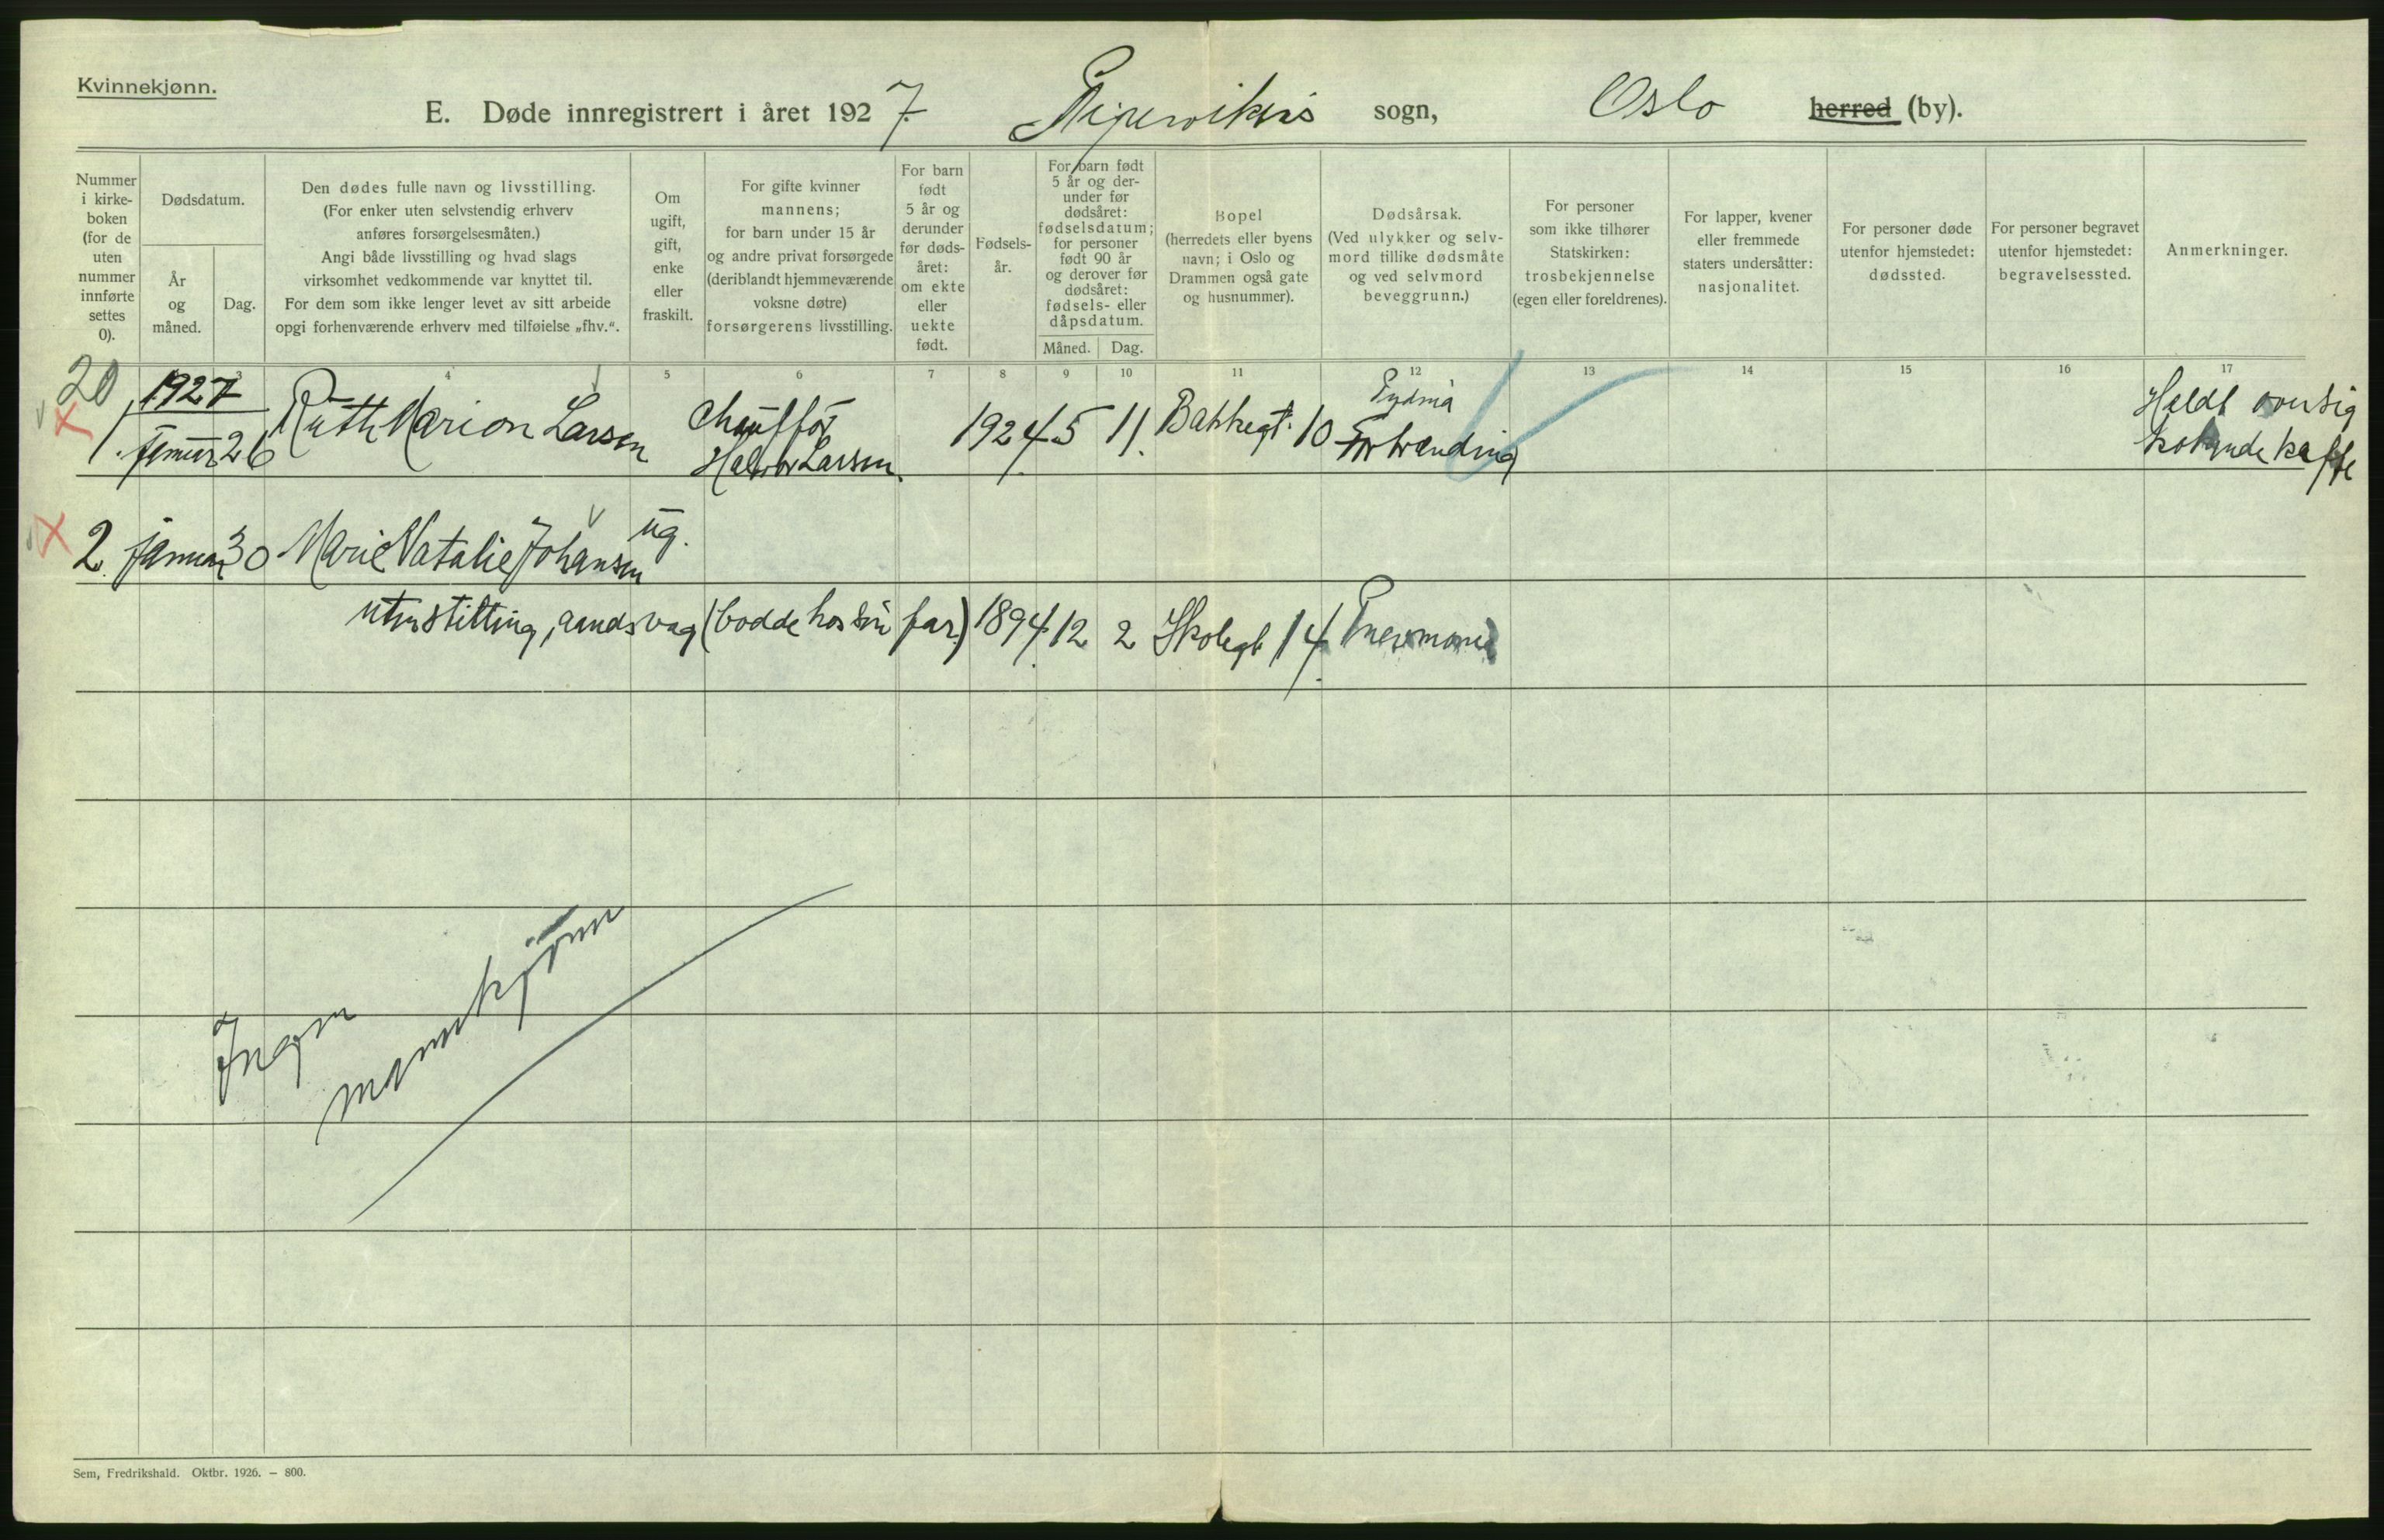 Kvinnekjønn.
E. Døde innregistrert i året 1927. Pipervikens sogn, Oslo herred (by).
Nummer i kirke-boken (for de uten nummer innførte settes 0).
Dødsdatum.
År og måned.
Dag.
Den dødes fulle navn og livsstilling.
(For enker uten selvstendig erhverv
anføres forsørgelsesmåten.)
Angi både livsstilling og hvad slags
virksomhet vedkommende var knyttet til.
For dem som ikke lenger levet av sitt arbeide
opgi forhenværende erhverv med tilføielse „fhv.“.
Om
ugift,
gift,
enke
eller
fraskilt.
For gifte kvinner
mannens;
for barn under 15 år
og andre privat forsørgede
(deriblandt hjemmeværende
voksne døtre)
forsørgerens livsstilling.
For barn
født
5 år og
derunder
før døds-
året:
om ekte
eller
uekte
født.
Fødsels-
år.
For barn født
5 år og der-
under før
dødsåret:
fødselsdatum;
for personer
født 90 år
og derover før
dødsåret:
fødsels- eller
dåpsdatum.
Måned.
Dag.
Bopel
(herredets eller byens
navn; i Oslo og
Drammen også gate
og husnummer).
Dødsårsak.
(Ved ulykker og selv-
mord tillike dødsmåte
og ved selvmord
beveggrunn.)
For personer
som ikke tilhører
Statskirken:
trosbekjennelse
(egen eller foreldrenes).
For lapper, kvener
eller fremmede
staters undersåtter:
nasjonalitet.
For personer døde
utenfor hjemstedet:
dødssted.
For personer begravet
utenfor hjemstedet:
begravelsessted.
Anmerkninger.
3 4 5 6 7 8 9 10 11 12 13 14 15 16 17
20
1927
1. januar 26 Ruth Marion Larsen
Chauffør
Halvor Larsen.
1924. 5 11. Bakkegt. 10
Forbrænding
Heldt over sig
kokende kaffe
2. januar 30 Marie Natalie Johansen ug.
uten stilling, aandsvag (bodde hos sin far) 1894. 12 2 Skolegt 14. Pneumoni
Ingen
mannkjønn
Sem, Fredrikshald. Oktbr. 1926. — 800.